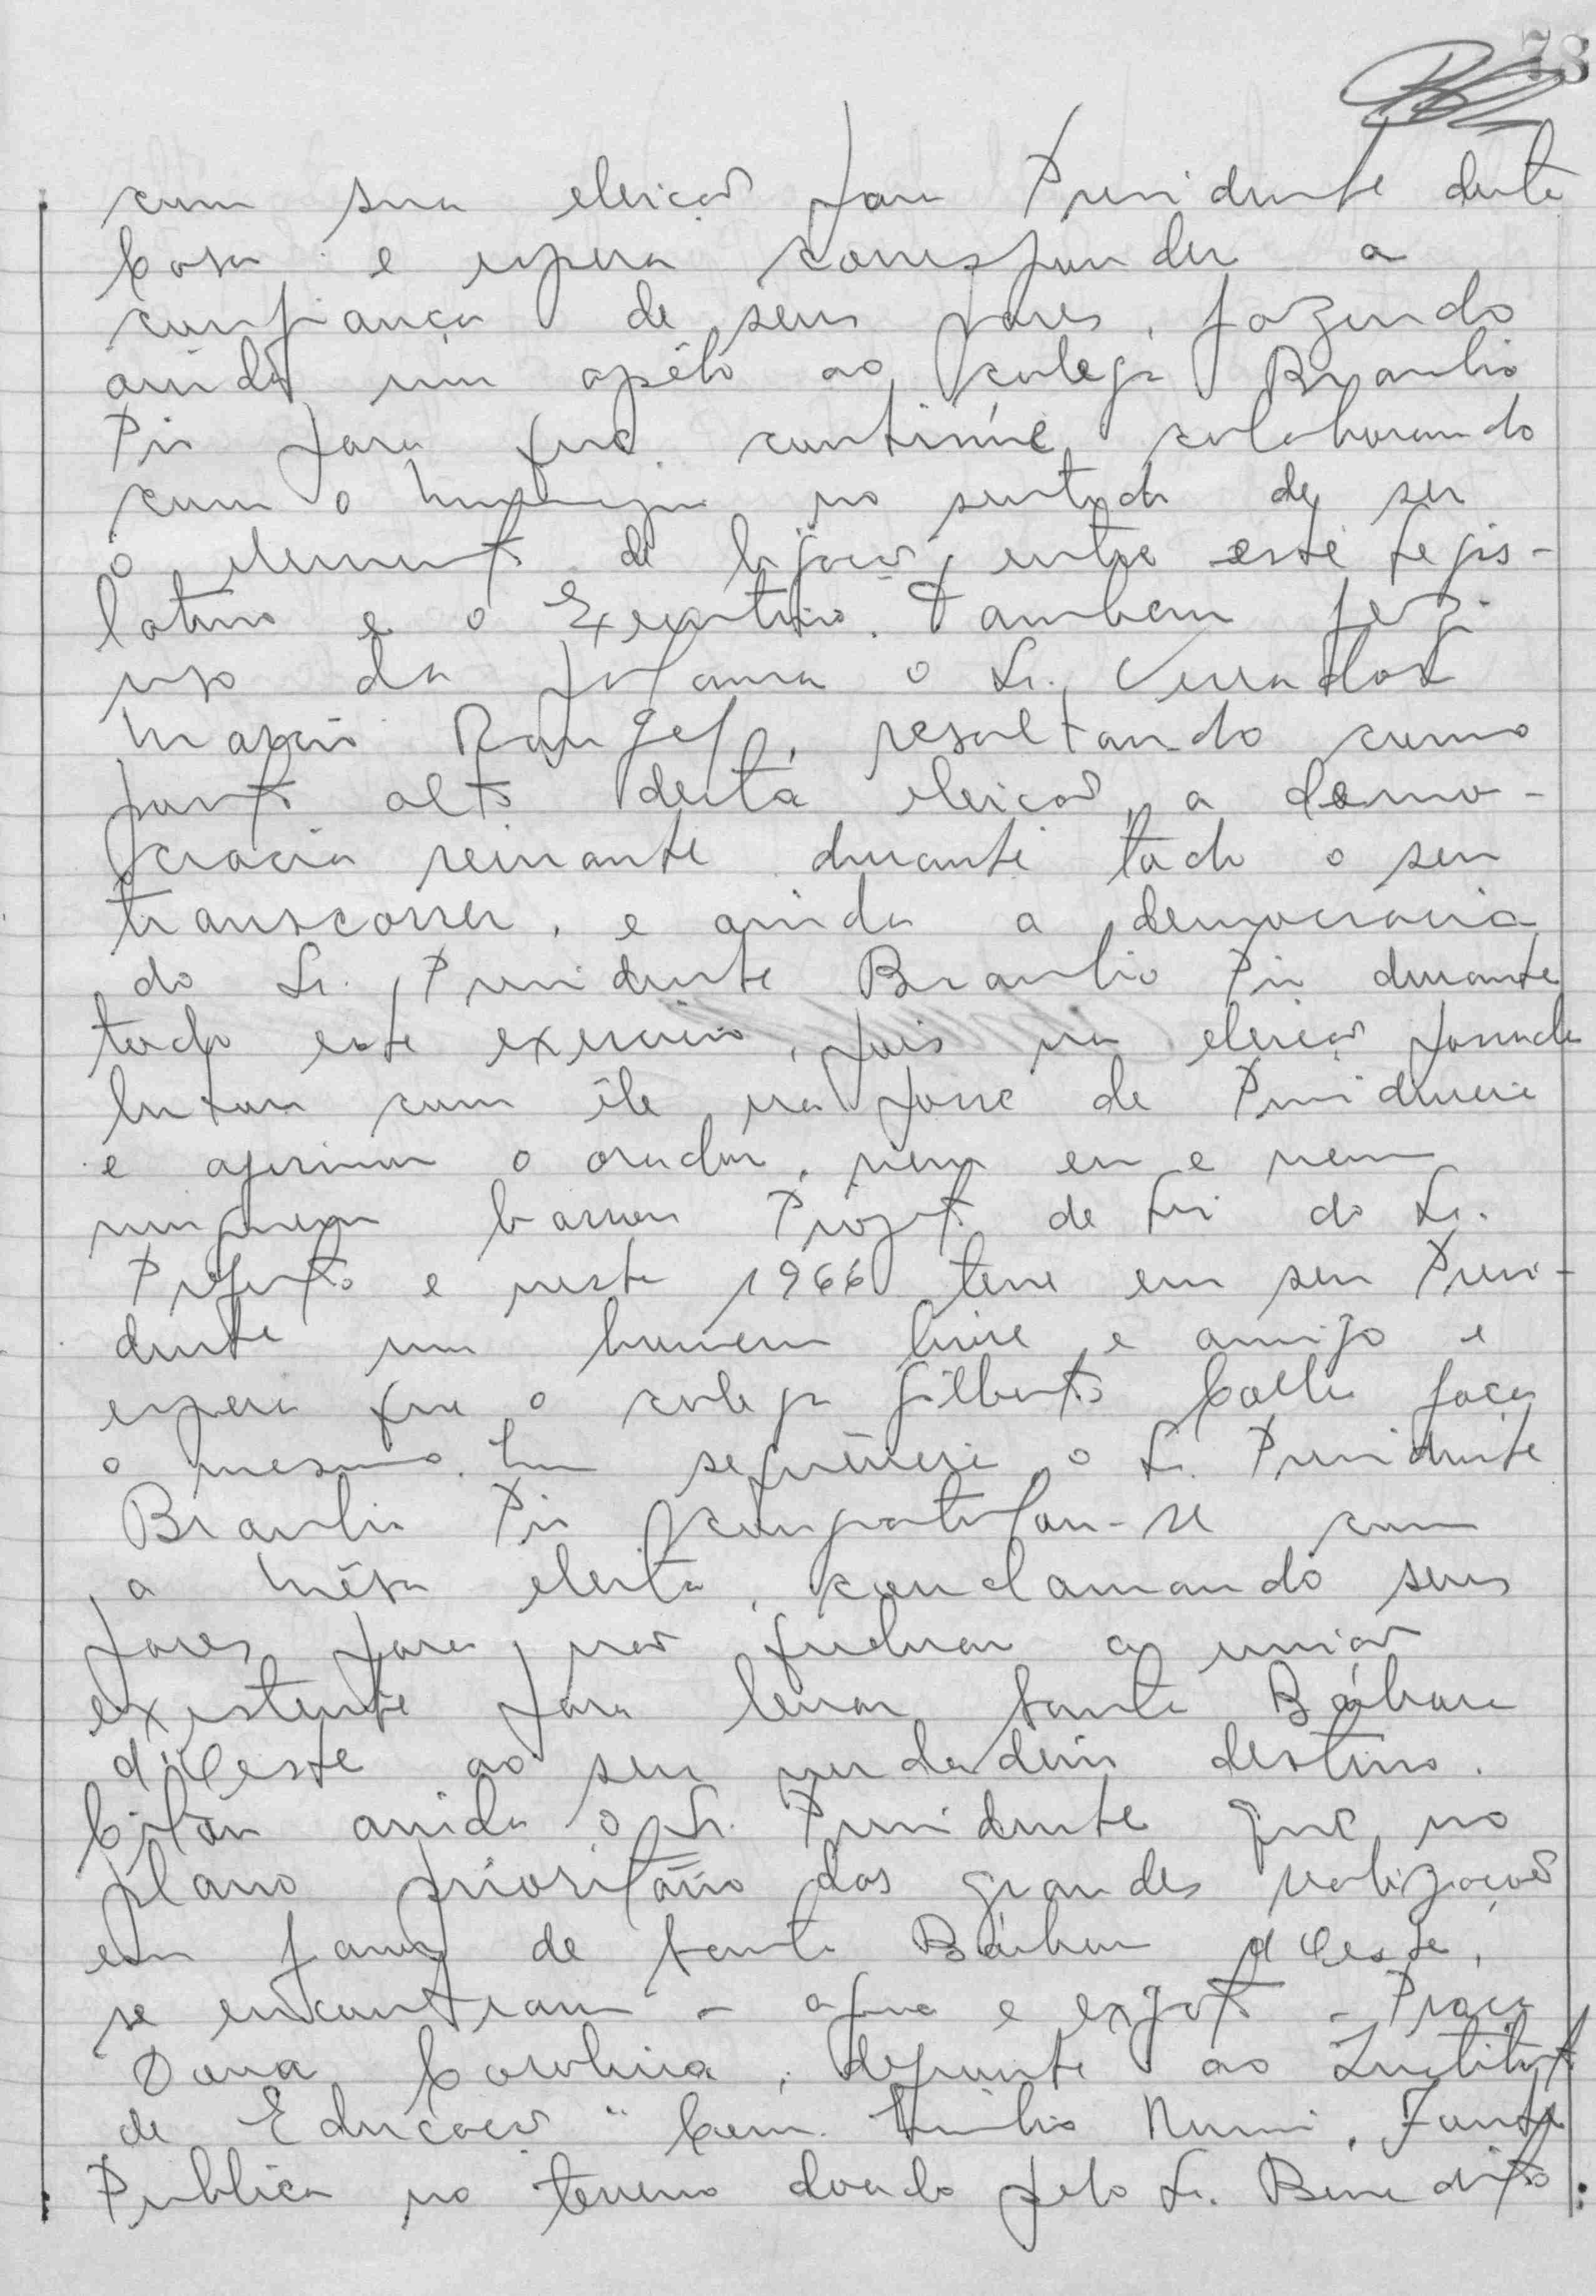 78
com sua eleição para Presidente desta
Casa e espera corresponder a
confiança de seus pares, fazendo
ainda um apêlo ao colega Braulio
Pio para que continúe colaborando
com o no sentido de ser
o elemento de ligação entre este Legis-
lativo e o Executivo. Tambem fez
uso da palavra o Sr. Vereador
Rangel, resaltando como
ponto alto desta eleição, a demo-
cracia reinante durante todo o seu
transcorrer, e ainda a democracia
do Sr. Presidente Braulio Pio durante
todo este exercicio, pois na eleição passada
lutou com êle na posse de Presidencia
e afirmou o orador, nem eu e nem
ninguem barrou Projeto de Lei do Sr.
Prefeito e neste 1966 teve em seu Presi-
dente um homem livre e amigo e
espera que o colega Gilberto faça
o mesmo. Em sequência o Sr. Presidente
Braulio Pio congratulou-se com
a Mêsa eleita, conclamando seus
pares para não quebrar a união
existente para levar Santa Bárbara
d'Oeste ao seu verdadeiro destino.
Citou ainda o Sr. Presidente que no
plano prioritário das grandes realizações
em favor de Santa Bárbara d'Oeste,
se encontram - agua e exgoto - Praça
Dona Carolina, defronte ao Instituto
de Educação "Com. Emilio Romi,
Publica no terreno doado pelo Sr. Benedito